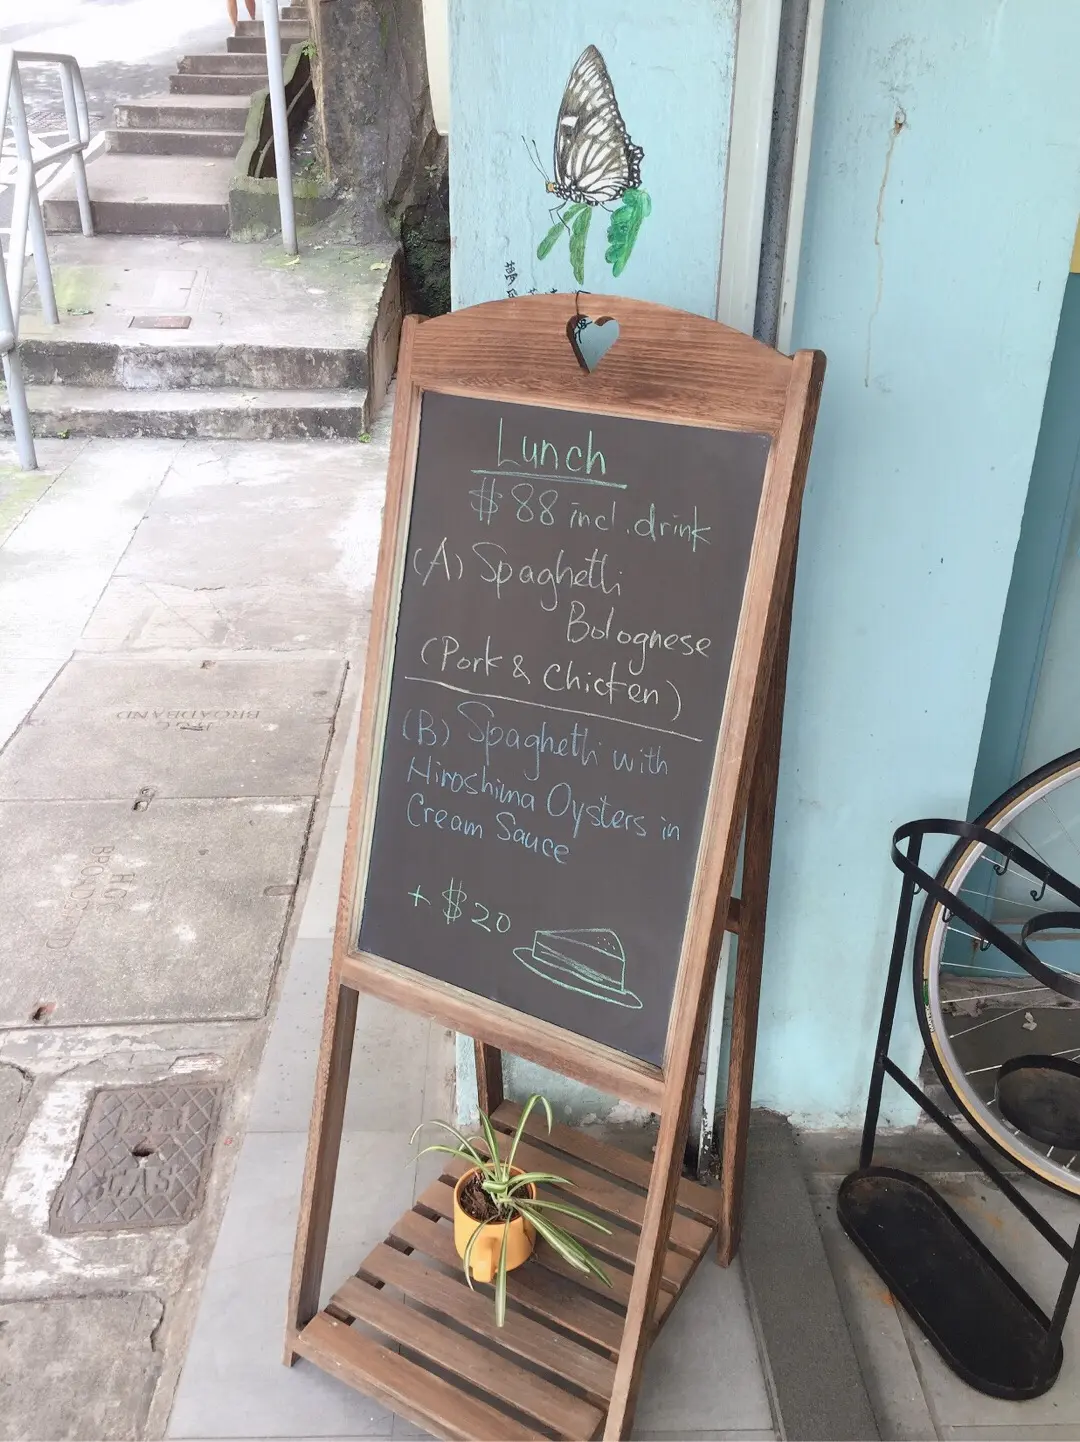 夢
Lunch
$88 incl. drink
(A) Spaghetti
Bolognese
(Pork & Chicken)
(B) Spaghetti with
Hiroshima Oysters in
Cream Sauce
+ $20
BROADBAND
BROADBAND
GAS